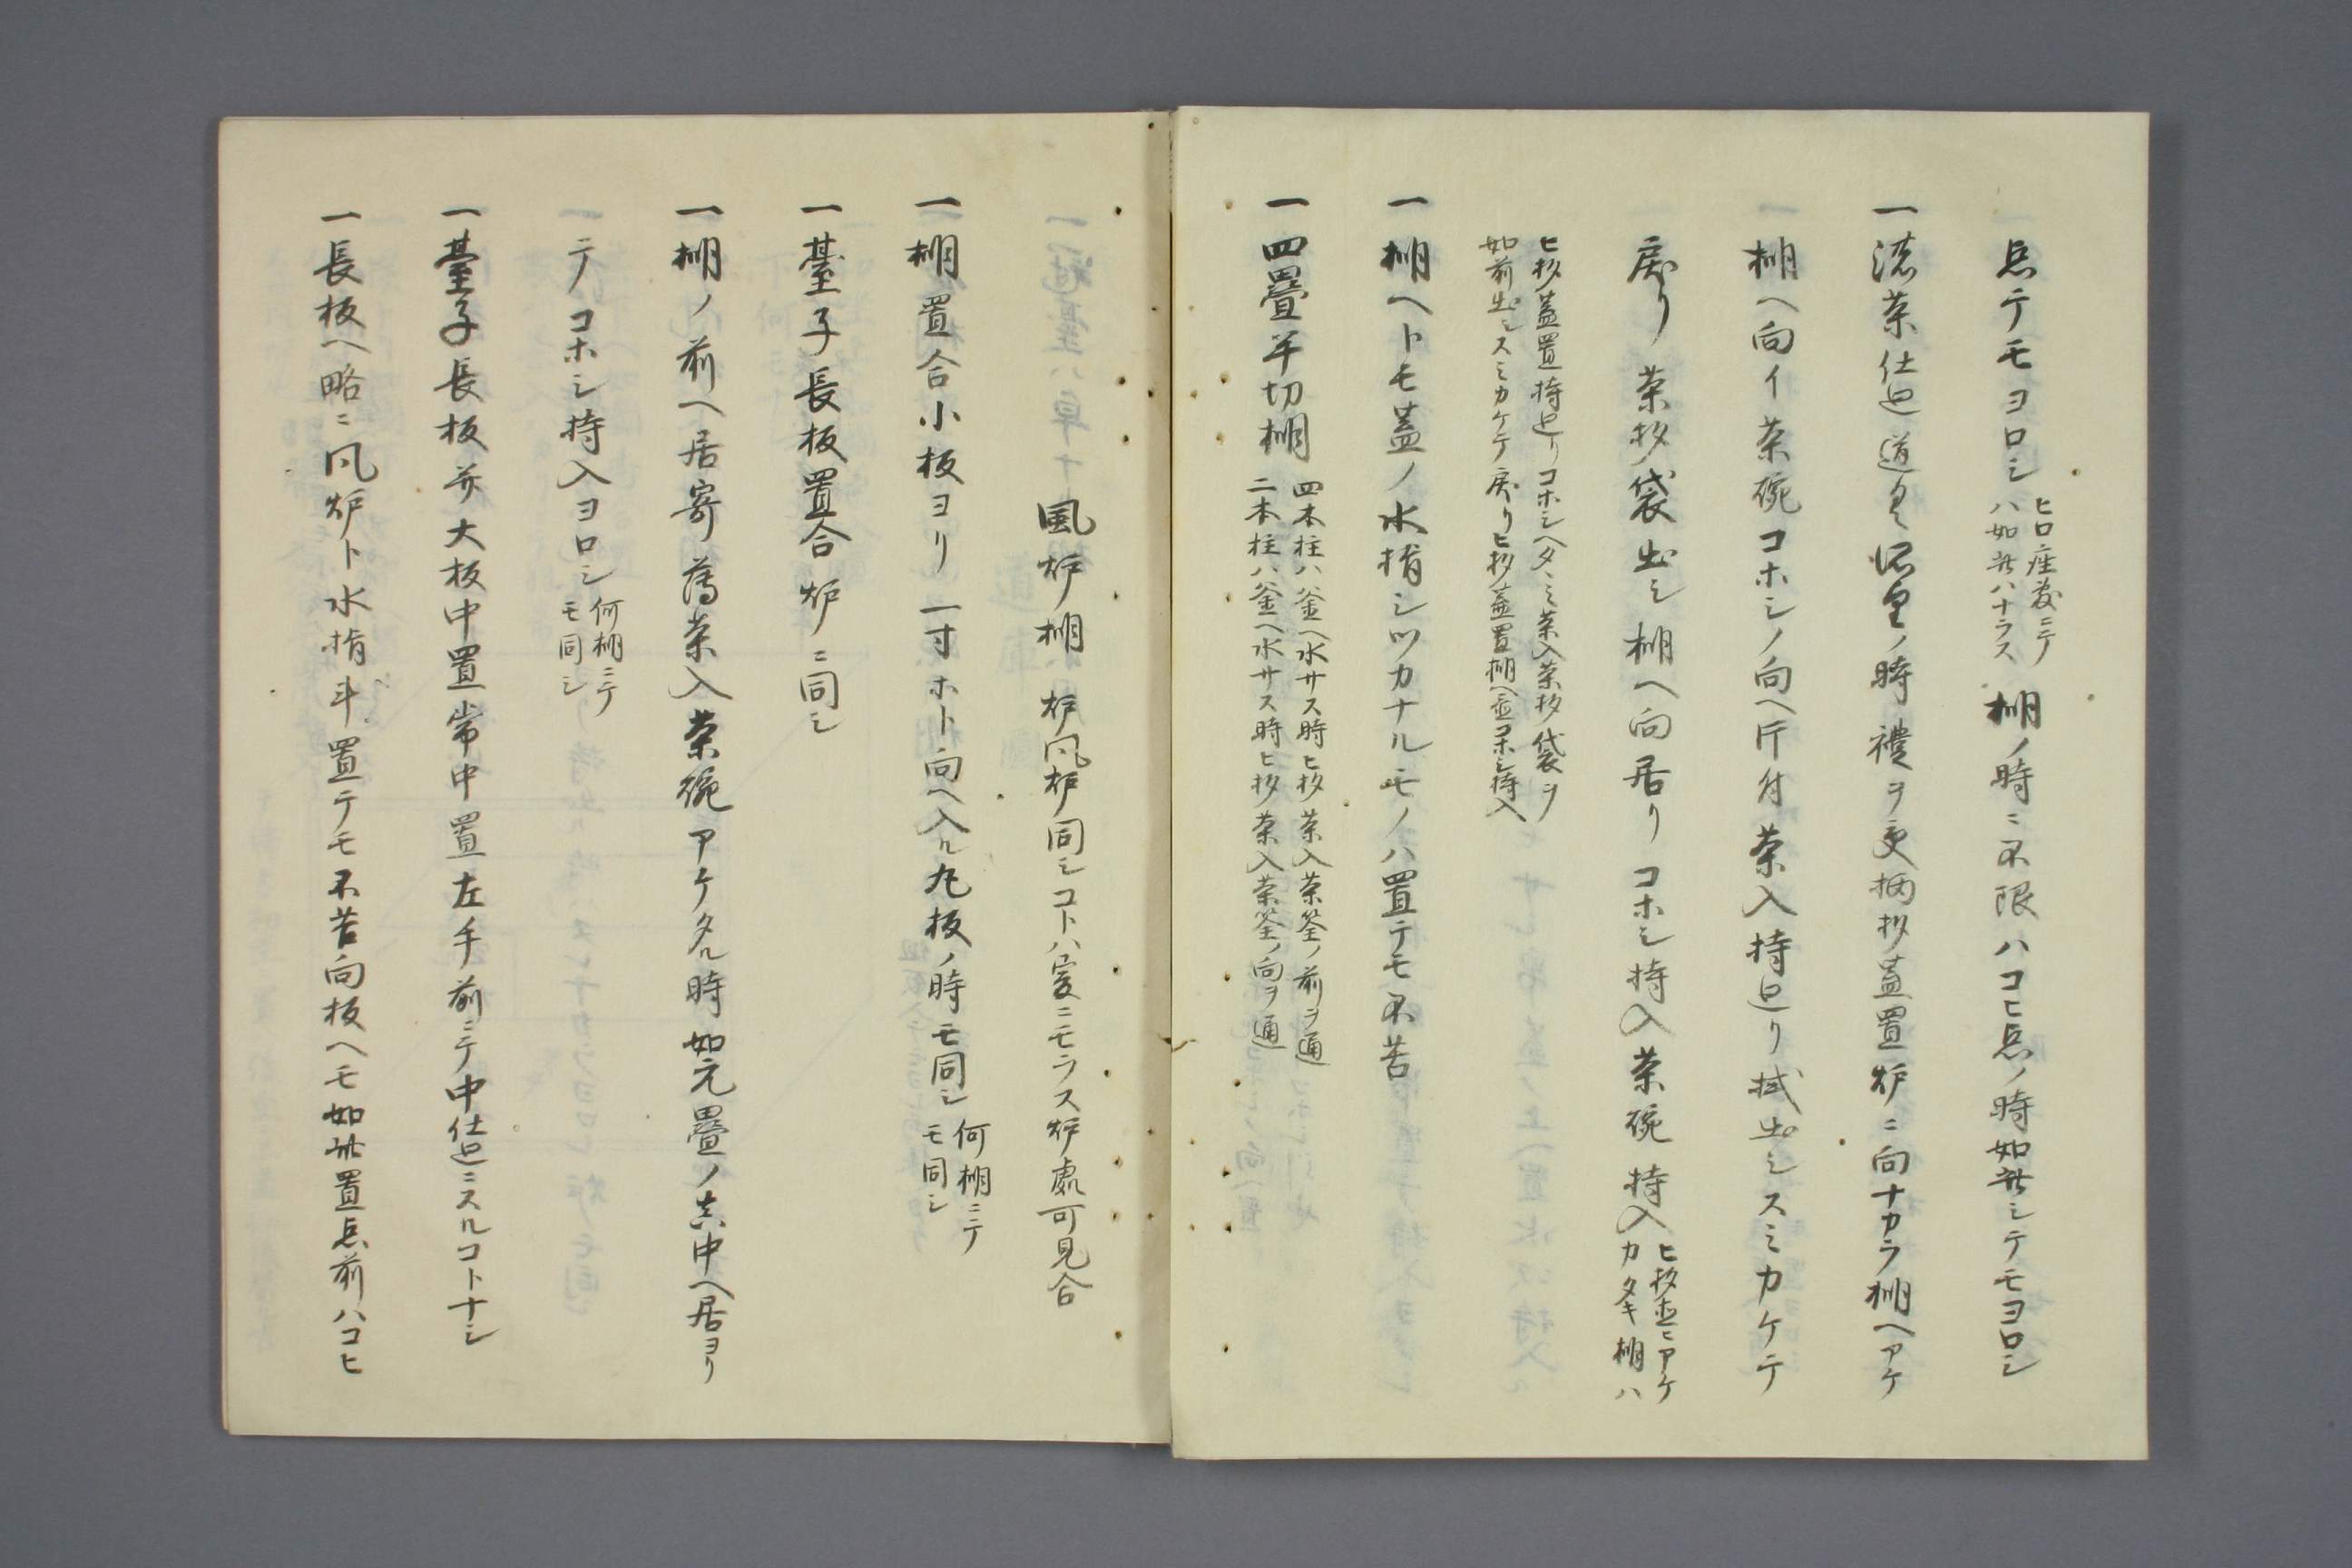 点テモヨロシ
ヒロ座敷ニテ
ハ如此ハナラス
棚ノ時ニ不限ハコヒ点ノ時如此シテモヨロシ
一濃茶仕廻道具ノ時禮ヲ受柄杓蓋置炉ニ向ナカラ棚ヘアケ
棚ヘ向イ茶碗コホシノ向ヘ片付茶入持廻リ拭出シスミカケテ
戻リ茶杓袋出シ棚ヘ向居リコホシ持入茶碗持入
ヒ杓並ヒアケ
カタキ棚ハ
ヒ杓蓋置持廻リコホシヘタヽミ茶入茶杓袋ヲ
如前出シスミカケテ戻リヒ杓蓋置棚ヘ並コホシ持入
一棚ヘトモ蓋ノ水指シツカナルモノハ置テモ不苦
一四疊半切棚
四本柱ハ釜ヘ水サス時ヒ杓茶入茶筌ノ前ヲ通
二本柱ハ釜ヘ水サス時ヒ杓茶入茶筌ノ向ヲ通
風炉棚 炉風炉同シコトハ爰ニモラス炉處可見合
一棚置合小板ヨリ一寸ホト向ヘ入ル丸板ノ時モ同シ
何棚ニテ
モ同シ
一臺子長板置合炉ニ同シ
一棚ノ前ヘ居寄薄茶入茶碗アケタル時如元疊ノ真中ヘ居ヨリ
一テコホシ持入ヨロシ
何棚ニテ
モ同シ
一臺子長板并大板中置常中置左手前ニテ中仕廻ニスルコトナシ
一長板ヘ略ニ風炉ト水指斗置テモ不苦向板ヘモ如此置点前ハコヒ